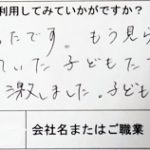 利用してみていかがですか？
ったです。もう見ら
ていた子どもたち
激しました。子ども
会社名またはご職業